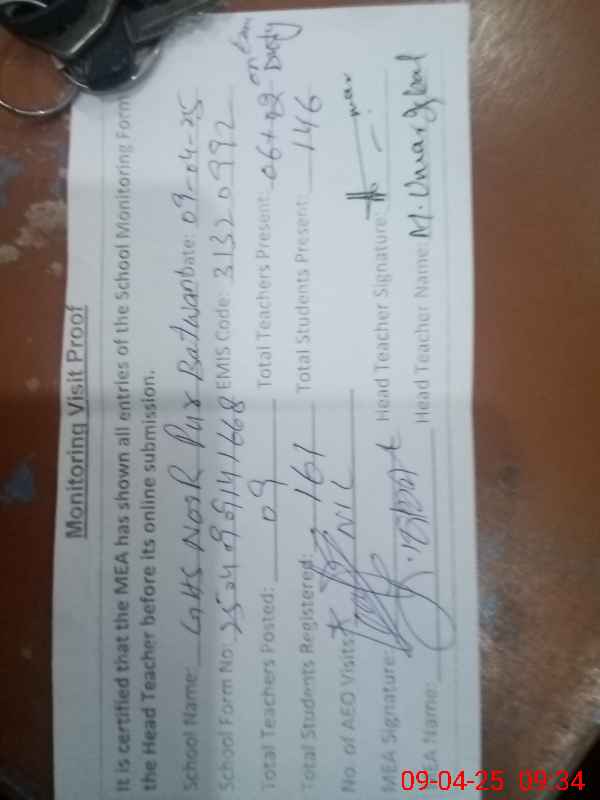 Monitoring Visit Proof
It is certified that the MEA has shown all entries of the School Monitoring Form
the Head Teacher before its online submission.
School Name: GHS Noor Pur Batwan Date: 09-04-25
School Form No: EMIS Code: 31320992
Total Teachers Posted: 09 Total Teachers Present: 06+02 on Exam Duty
Total Students Registered: 161 Total Students Present: 146
No. of AEO Visits: NIL
MEA Signature: Head Teacher Signature:
EA Name: Head Teacher Name: M. Umar Iqbal
09-04-25 09:34